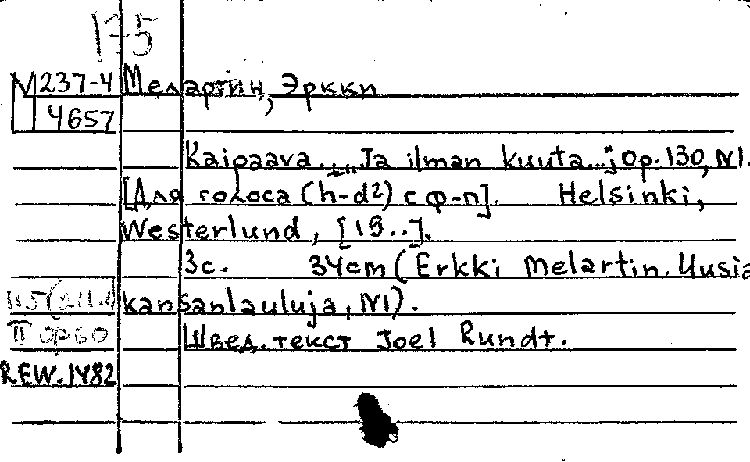 175
М237-4 Мелартин, Эркки
4657
Kaipaava... „Ja ilman kuuta...“; Op. 130, N1.
[Для голоса (h-d²) с ф-п]. Helsinki,
Westerlund, [19..].
3с. 34cm (Erkki Melartin. Uusia
kansanlauluja, N1).
Швед. текст Joel Rundt.
REW.1482